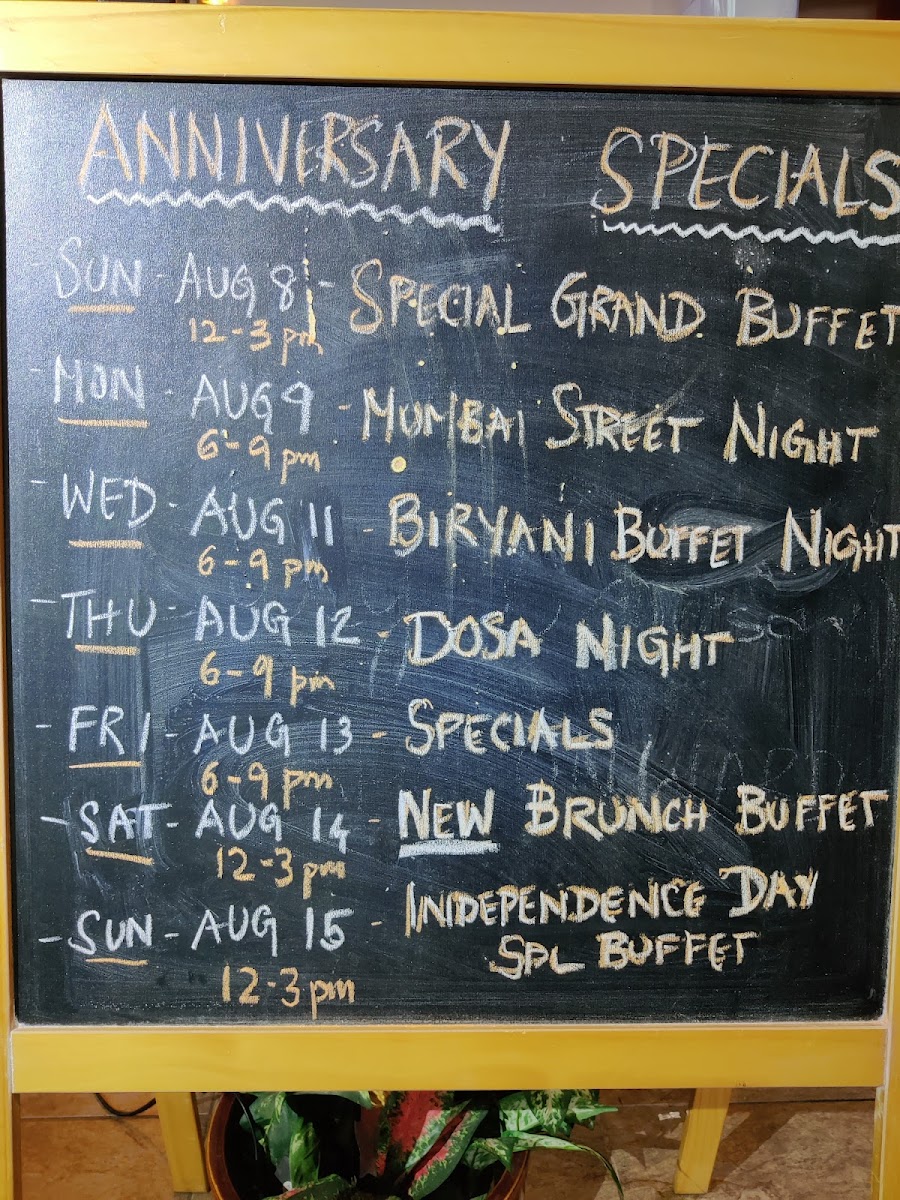 ANNIVERSARY SPECIALS
- SUN - AUG 8 - SPECIAL GRAND BUFFET
12-3 pm
- MON - AUG 9 - MUMBAI STREET NIGHT
6-9 pm
- WED - AUG 11 - BIRYANI BUFFET NIGHT
6-9 pm
- THU - AUG 12 - DOSA NIGHT
6-9 pm
- FRI - AUG 13 - SPECIALS
6-9 pm
- SAT - AUG 14 - NEW BRUNCH BUFFET
12-3 pm
- SUN - AUG 15 - INDEPENDENCE DAY
SPL BUFFET
12-3 pm